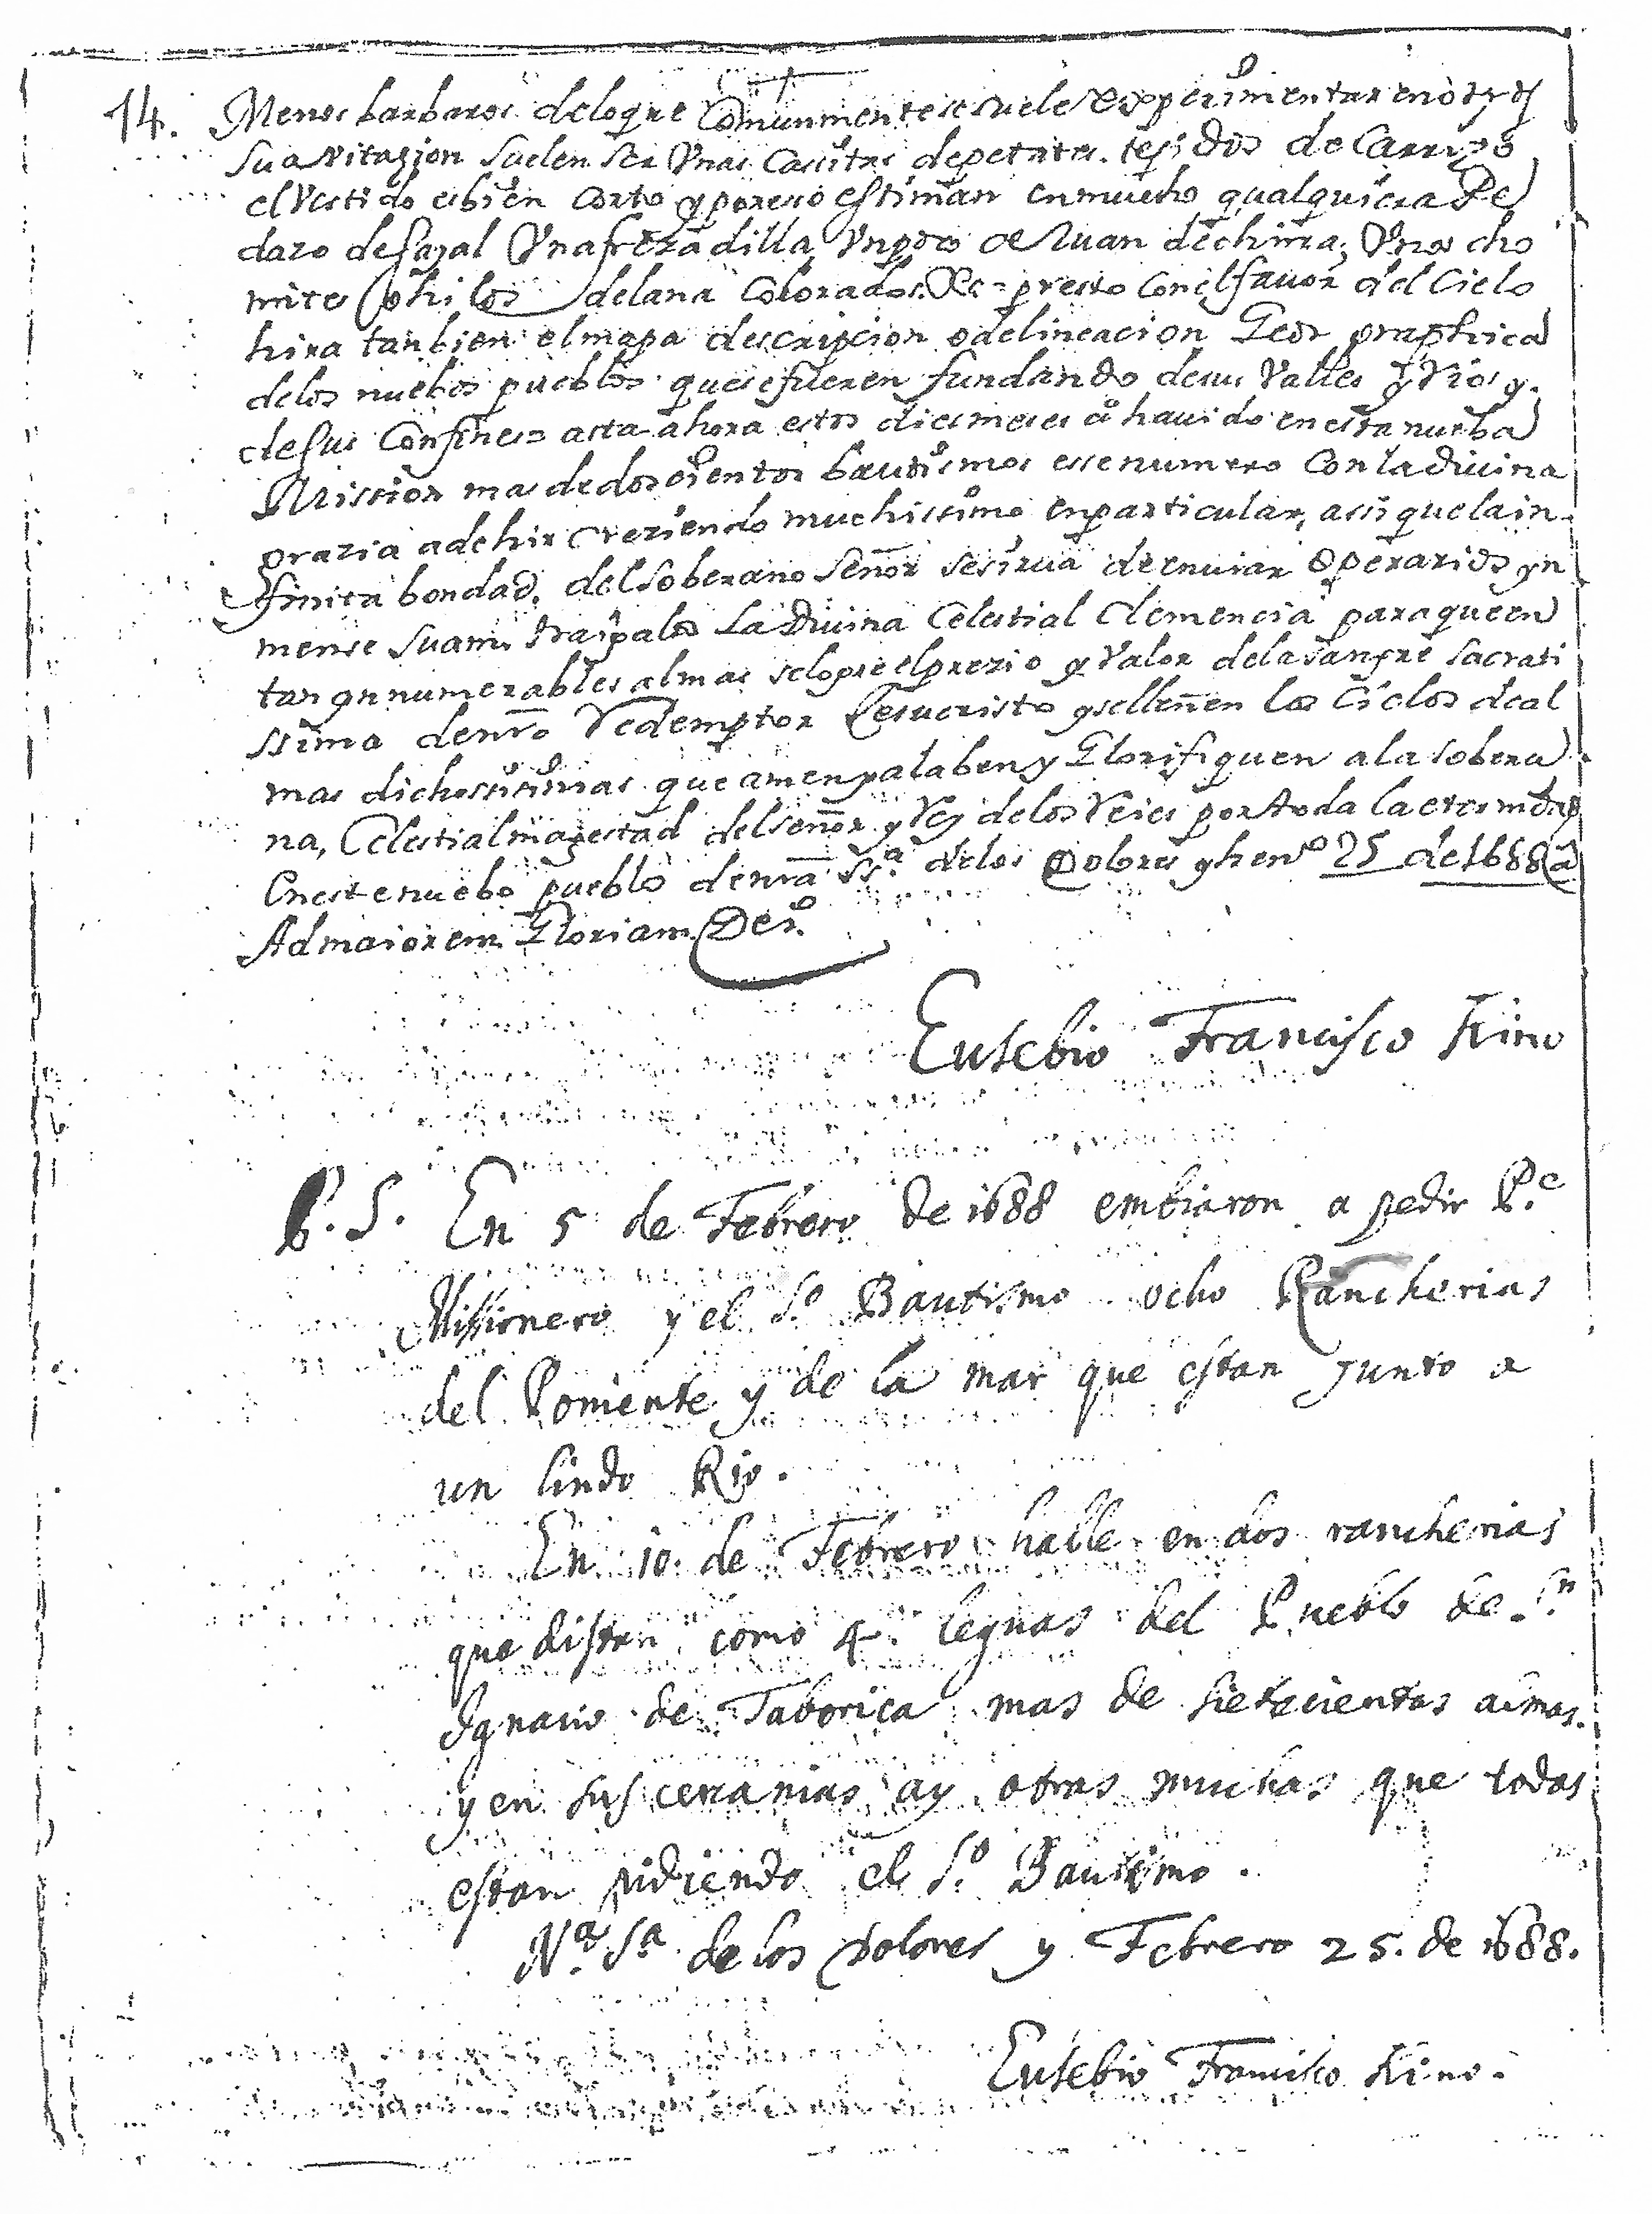 14. Menos barbaros deloque Comunmente se suele experimentar en
su avitazion suelen ser Unas Cassitas depetates tesidos de Carrizo
el Vestido es bien corto y por esso estiman en mucho qualquiera Pe
dazo de sayal Una frezadilla Un de Ruan de china, Unos cho
mites o hilos de lana Colorados &c = presto Con el favor del Cielo
hira tanbien el mapa descripcion o delineacion Geographica
delos nuebos pueblos que se fueren fundando de sus Valles y Rios y
de sus Confines = asta ahora estos dies meses a havido en esta nueba
Mission mas de dos cientos bautismos esse numero Con la divina
grazia a de hir creziendo muchissimo en particular, assi que la in
finita bondad, del soberano Señor se sirva de enviar Operarios yn
mense suam La Divina Celestial Clemencia para que en
tan ynnumerables almas se logre el prezio y Valor de la sangre sacrati
ssima de nro Redemptor Jesucristo y se llenen los Cielos de al
mas dichosissimas que amen y alaben y Glorifiquen a la sobera
na, Celestial magestad del señor y Rey de los Reies por toda la eternidad
En este nuebo pueblo de nra Sra. delos Dolores y hen.o 25 de 1688 a
Ad maiorem Gloriam Dei.
Eusebio Francisco Kino
P. S. En 5 de Febrero de 1688 embiaron a pedir P.e
Missionero y el S.o Bautismo ocho Rancherias
del Poniente y de la mar que estan junto a
un lindo Rio.
En 10. de Febrero halle en dos rancherias
que distan como 4. leguas del Pueblo de S.n
Ignacio de Taborica mas de sietecientas almas.
y en sus cercanias ay otras muchas que todas
estan pidiendo el S.o Bautismo.
N.a S.a de los Dolores y Febrero 25. de 1688.
Eusebio Francisco Kino.